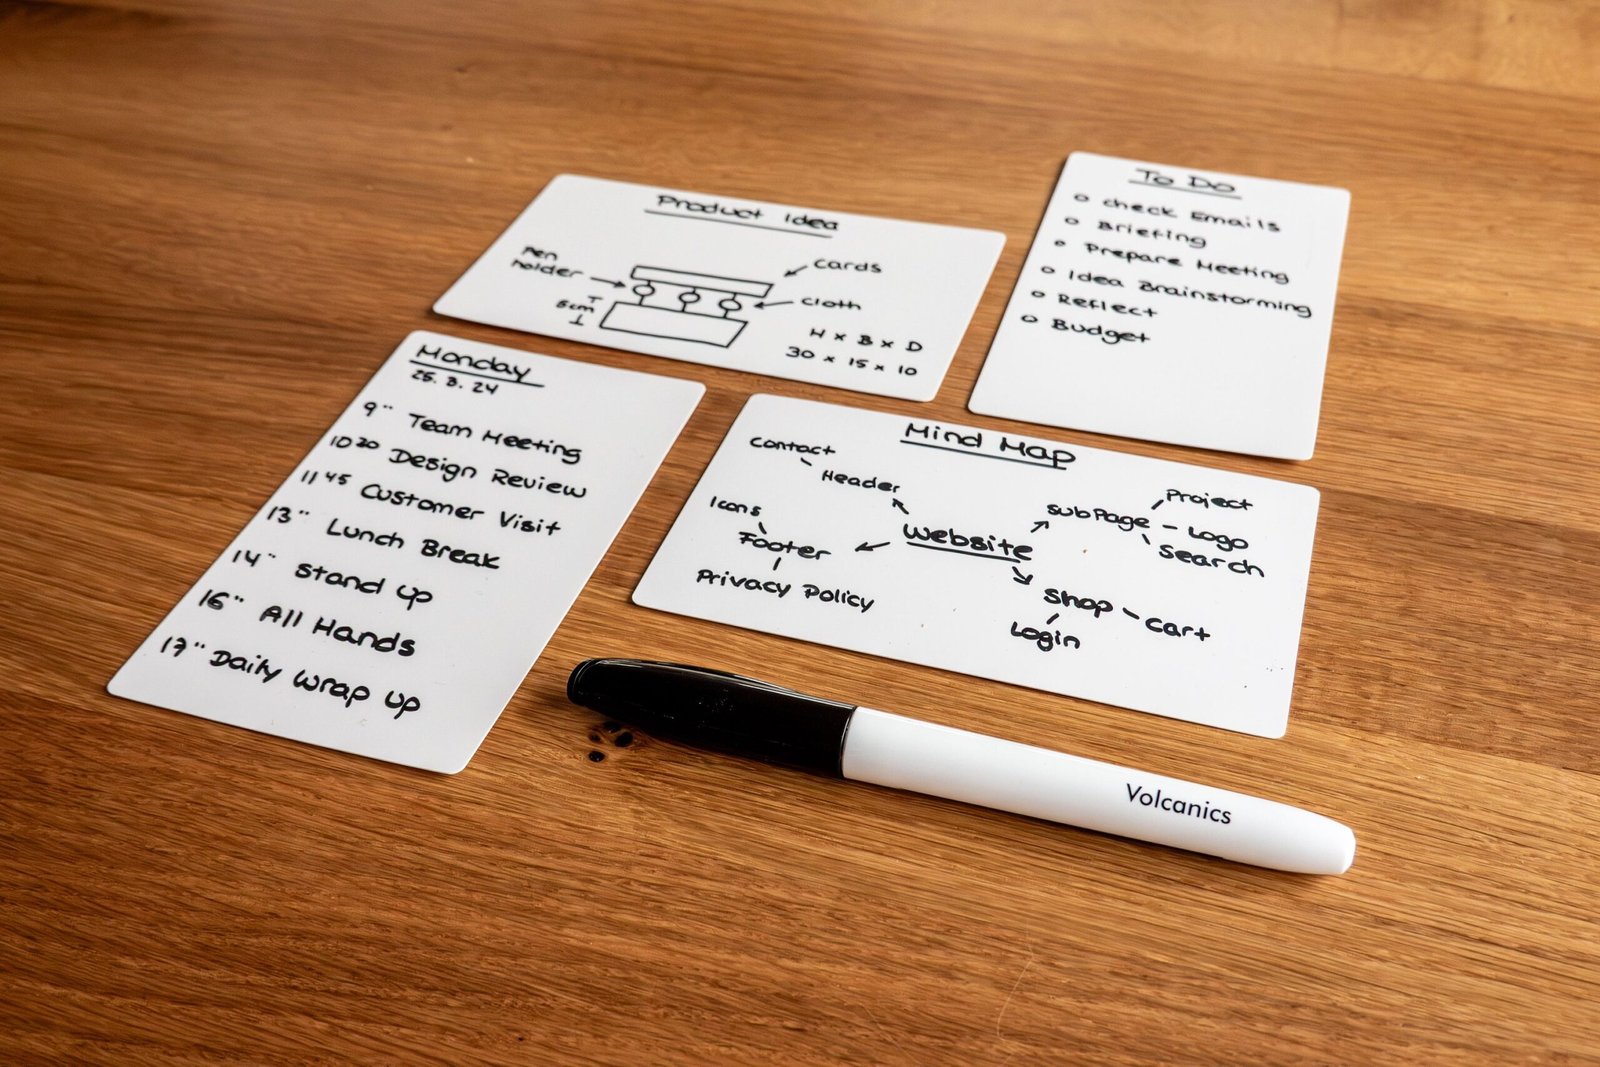 Product Idea
Pen
holder
cards
cloth
5cm
H x B x D
30 x 15 x 10
To Do
o check Emails
o Briefing
o Prepare Meeting
o Idea Brainstorming
o Reflect
o Budget
Monday
25. 3. 24
9 00 Team Meeting
10 30 Design Review
11 45 Customer Visit
13 00 Lunch Break
14 00 stand up
16 00 All Hands
17 00 Daily Wrap up
Mind Map
Contact
Header
Icons
Footer
Privacy Policy
Website
subPage
Project
Logo
Search
Shop
Cart
Login
Volcanics